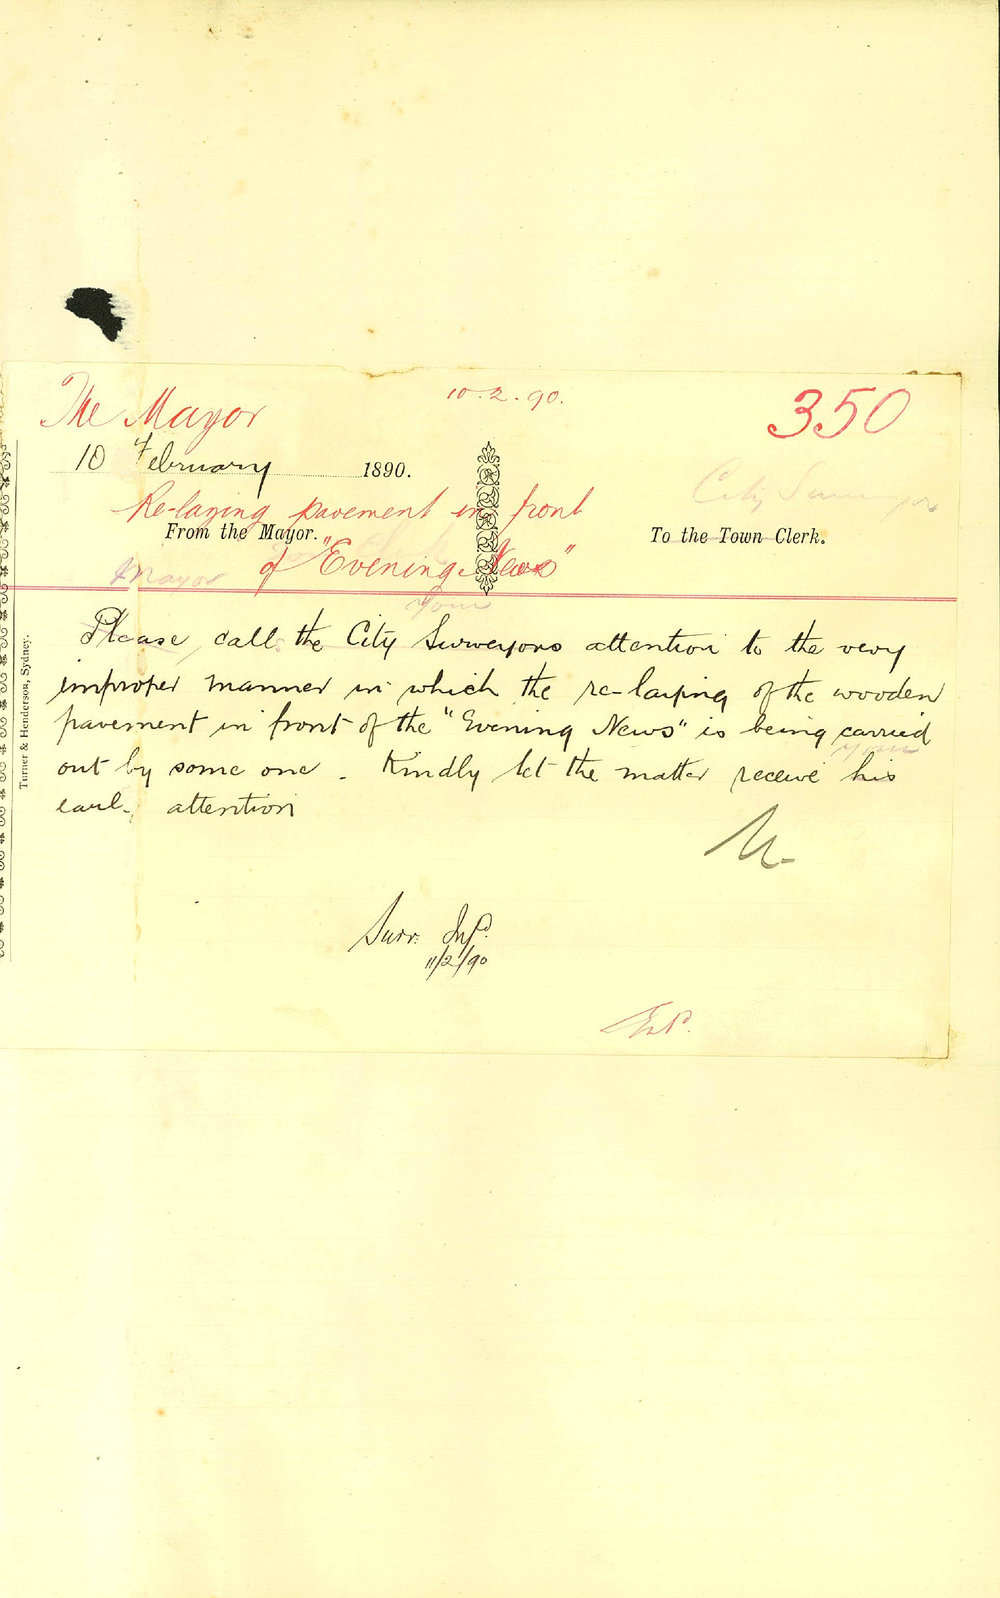 The Mayor
10.2.90.
350
10 February 1890.
City Surveyor
Re-laying pavement in front
From the Mayor.
To the Town Clerk.
of "Evening News"
Mayor
your
Please call the City Surveyors attention to the very
improper manner in which the re-laying of the wooden
pavement in front of the "Evening News" is being carried
your
out by some one. Kindly let the matter receive his
attention
Surr.
11/2/90
Turner & Henderson, Sydney.